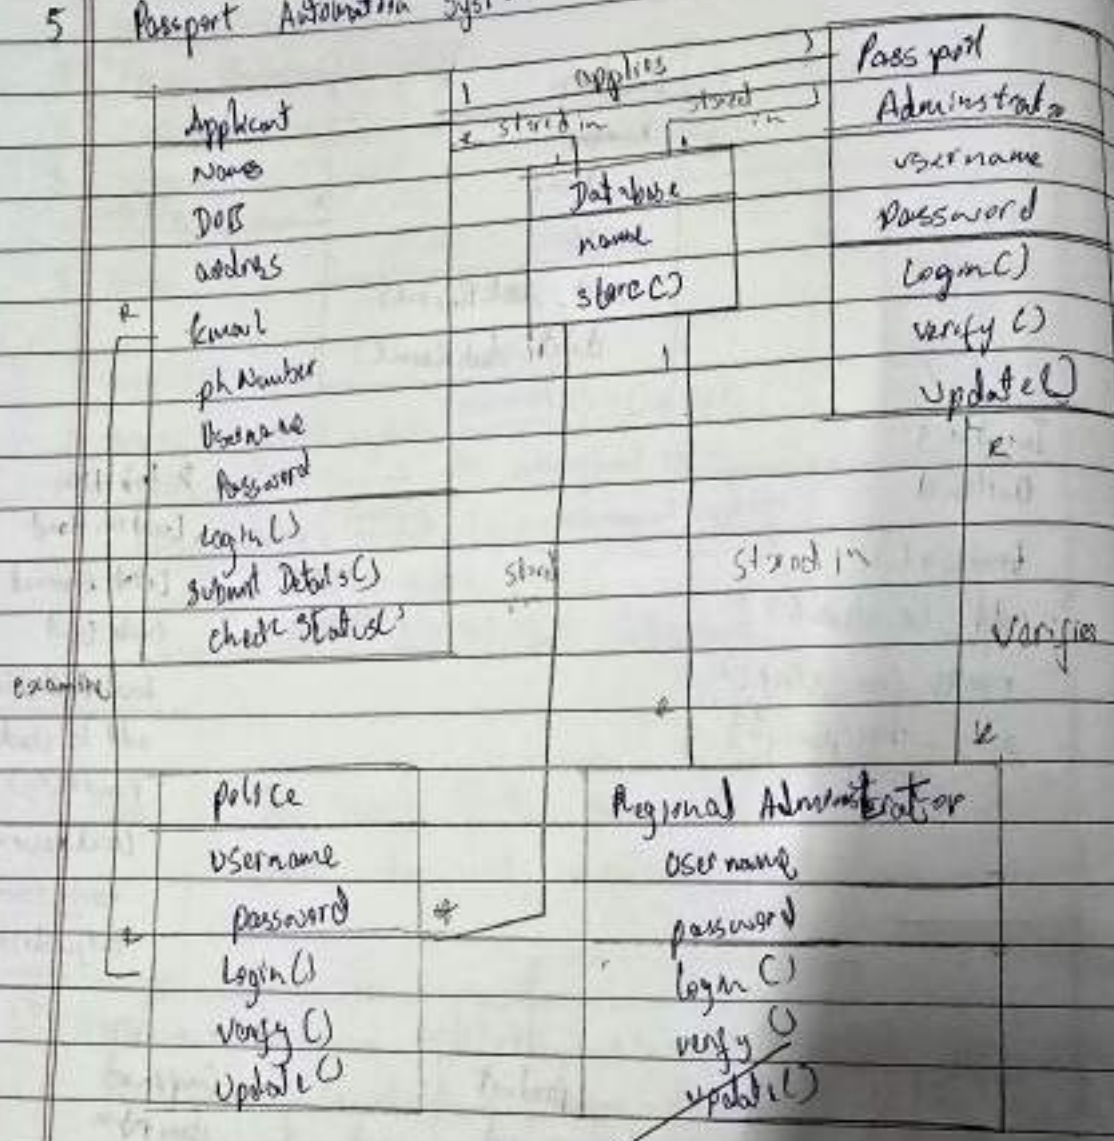 5 Passport Automation Syst
Applicant
Name
DOB
address
Email
ph Number
Username
Password
login()
submit Details()
check Status()
1 applies
* stored in
stored in
1
Database
name
store()
Passport
Administrator
username
password
login()
verify()
update()
stored in
1
stored in
*
verifies
*
examine
*
police
username
password
login()
verify()
update()
*
*
Regional Administrator
username
password
login()
verify()
update()